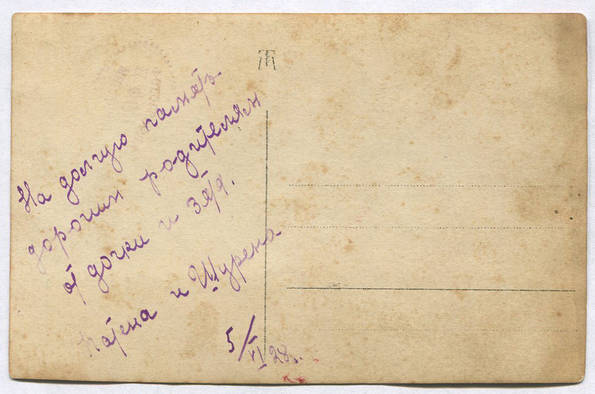 На долгую память
дорогим родителям
от дочки и зятя.
Катена и Шурена
5/VI 28г.